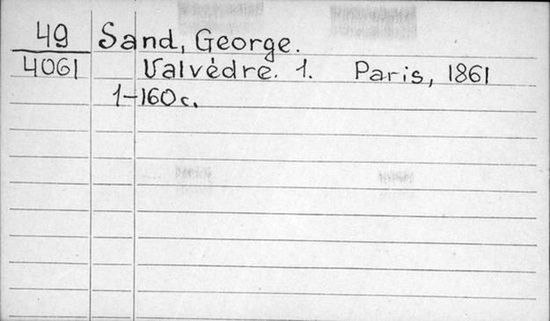 49 Sand, George.
4061 Valvèdre. 1. Paris, 1861
1-160 c.